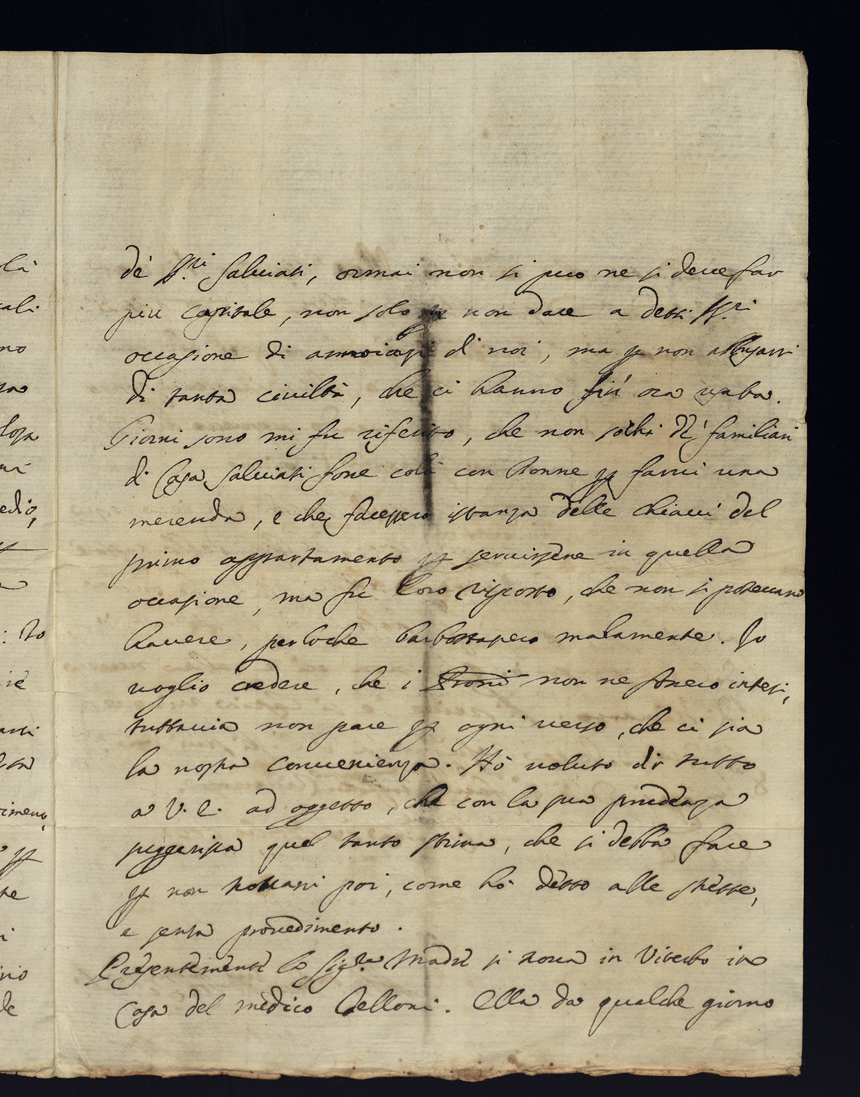 de' SS.ri Salviati, ormai non si può ne si deve far
più capitale, non solo non dare a detti SS.ri
occasione di di noi, ma p non abusarsi
di tanta civiltà, che ci hanno fin' ora usata.
Giorni sono mi fu riferito, che non familiari
di Casa Salviati fone colà con Donne p farvi una
merenda, e che facessero istanza delle chiavi del
primo appartamento p servirsene in quella
occasione, ma fu loro risposto, che non si potevano
havere, perloche barbottassero malamente. Io
voglio credere, che i Proni non ne siano intesi,
tuttavia non pare p ogni verso, che ci sia
la nostra convenienza. Hò voluto dir tutto
a V. E. ad oggetto, che con la sua prudenza
suggerisca quel tanto stima, che si debba fare
p non trovarsi poi, come hò detto alle strette,
e senza provedimento.
Presentemente la Sig.ra Madre si trova in Viterbo in
Casa del medico Belloni. Ella da qualche giorno